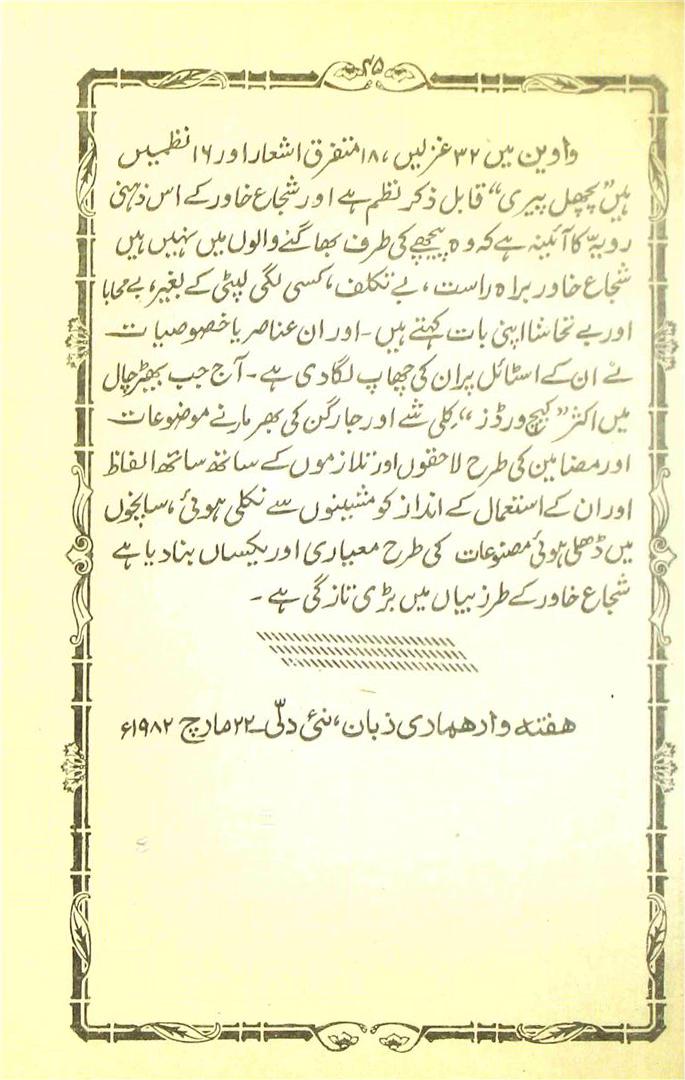 ۴۵
واوین میں ۳۲ غزلیں ، ۱۸ متفرق اشعار اور ۱۶ نظمیں
ہیں ”پچھل پیری“ قابل ذکر نظم ہے اور شجاع خاور کے اس ذہنی
رویہّ کا آئینہ ہے کہ وہ پیچھے کی طرف بھاگنے والوں میں نہیں ہیں
شجاع خاور براہ راست ، بے تکلف ، کسی لگی لپٹی کے بغیر ، بے محابا
اور بے تحاشا اپنی بات کہتے ہیں ۔ اور ان عناصر یا خصوصیات
نے ان کے اسٹائل پر ان کی چھاپ لگا دی ہے ۔ آج جب بھیڑ چال
میں اکثر ”کیچ ورڈز“ ، کلی شے اور جارگن کی بھرمار نے موضوعات
اور مضامین کی طرح لاحقوں اور تلازموں کے ساتھ ساتھ الفاظ
اور ان کے استعمال کے انداز کو مشینوں سے نکلی ہوئی ، سانچوں
میں ڈھلی ہوئی مصنوعات کی طرح معیاری اور یکساں بنا دیا ہے
شجاع خاور کے طرز بیاں میں بڑی تازگی ہے ۔
ہفتہ وار ہماری زبان ، نئی دلّی ۔ ۲۲ مارچ ۱۹۸۲ء